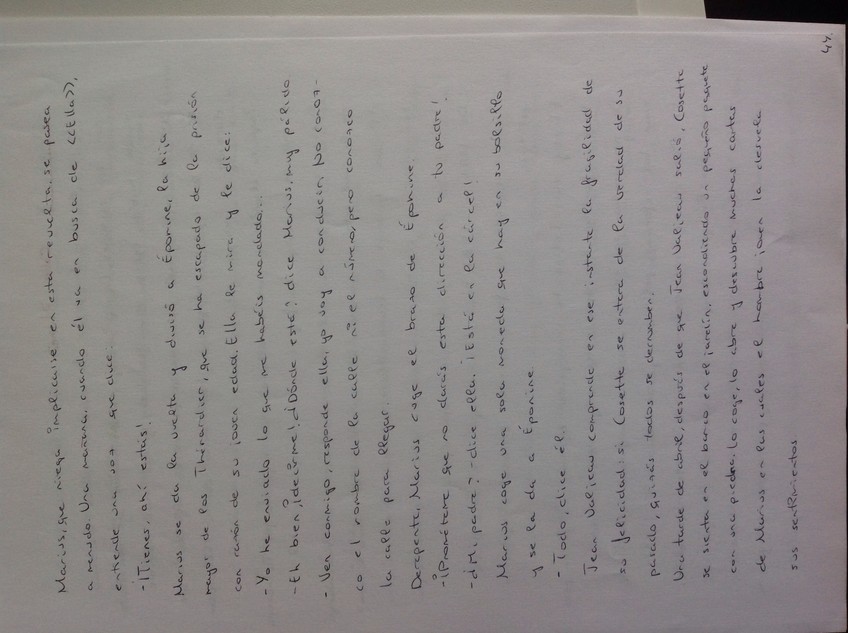 Marius, que niega implicarse en esta revuelta, se pasea
a menudo. Una manana, cuando él va en busca de <<Ella>>,
entiende una voz que dice:
-¡Tienes, ahí estás!
Marius se da la vuelta y divisó a Éponine, la hija
mayor de los Thénardier, que se ha escapado de la prisión
con razón de su joven edad. Ella le mira y le dice:
- Yo he enviado lo que me habéis mandado...
- Eh bien, ¡deédrme! ¿Dónde está? dice Marius, muy pálido
- Ven conmigo, responde ella, yo voy a conducir. No conoz-
co el nombre de la calle ni el número, pero conozco
la calle para llegar.
Derepente, Marius coge el brazo de Éponine.
-¡Prométeme que no darás esta dirección a tu padre!
-¿Mi padre? -dice ella. ¡Está en la cárcel!
Marius coge una sola moneda que hay en su bolsillo
y se la da a Éponine
- Todo, dice él.
Jean Valjean comprende en ese instante la fragilidad de
su felicidad: si Cosette se entera de la verdad de su
pasado, quizás todos se derrumben.
Una tarde de abril, después de que Jean Valjean salió, Cosette
se sienta en el banco en el jardín, escondiendo un pequeño paquete
con una piedra. Lo coge, lo abre y descubre muchas cartas
de Marius en las cuales el hombre joven la desvela
sus sentimientos
44.